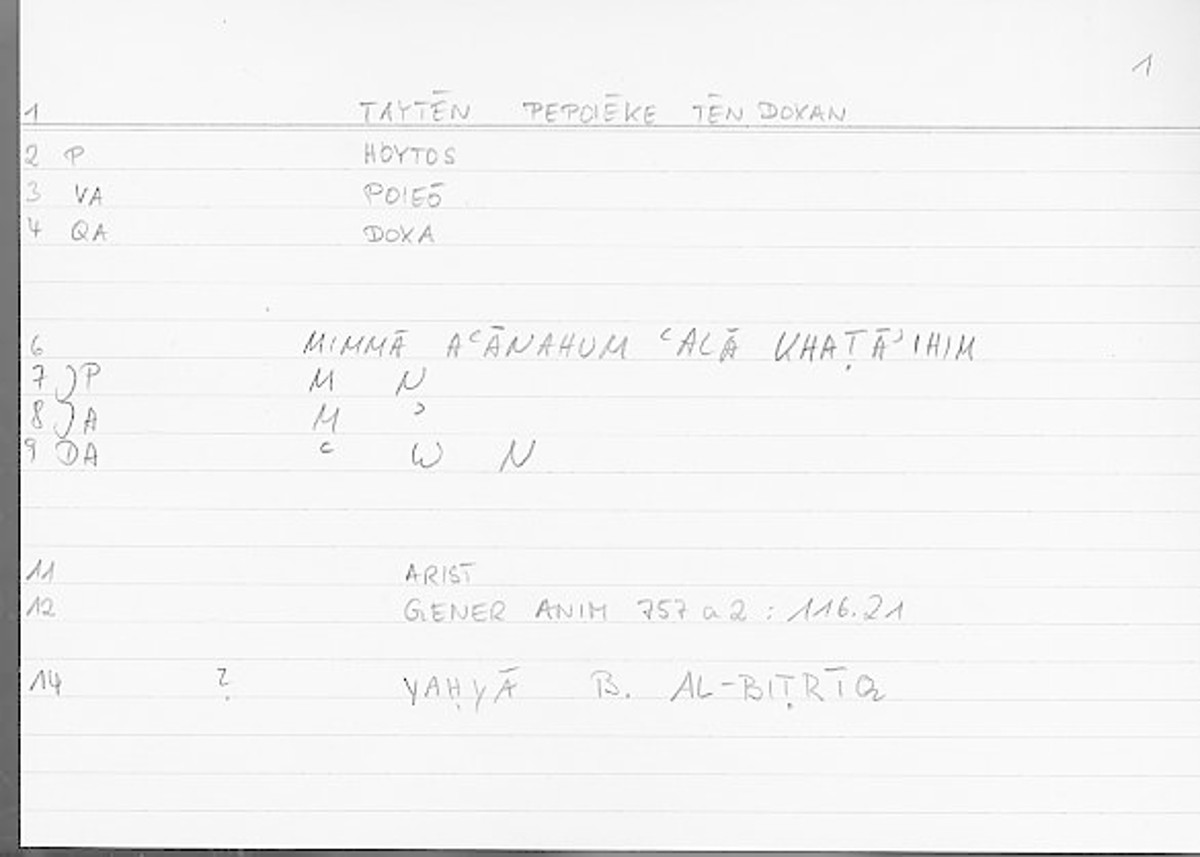 1
1 TAYTĒN PEPOIĒKE TĒN DOXAN
2 P HOYTOS
3 VA POIEŌ
4 QA DOXA
6 MIMMĀ AʿĀNAHUM ʿALĀ KHAṬĀʾIHIM
7 ) P M N
8 ) A M ʾ
9 DA ʿ W N
11 ARIST
12 GENER ANIM 757 a 2 : 116.21
14 ? YAḤYĀ B. AL-BIṬRĪQ